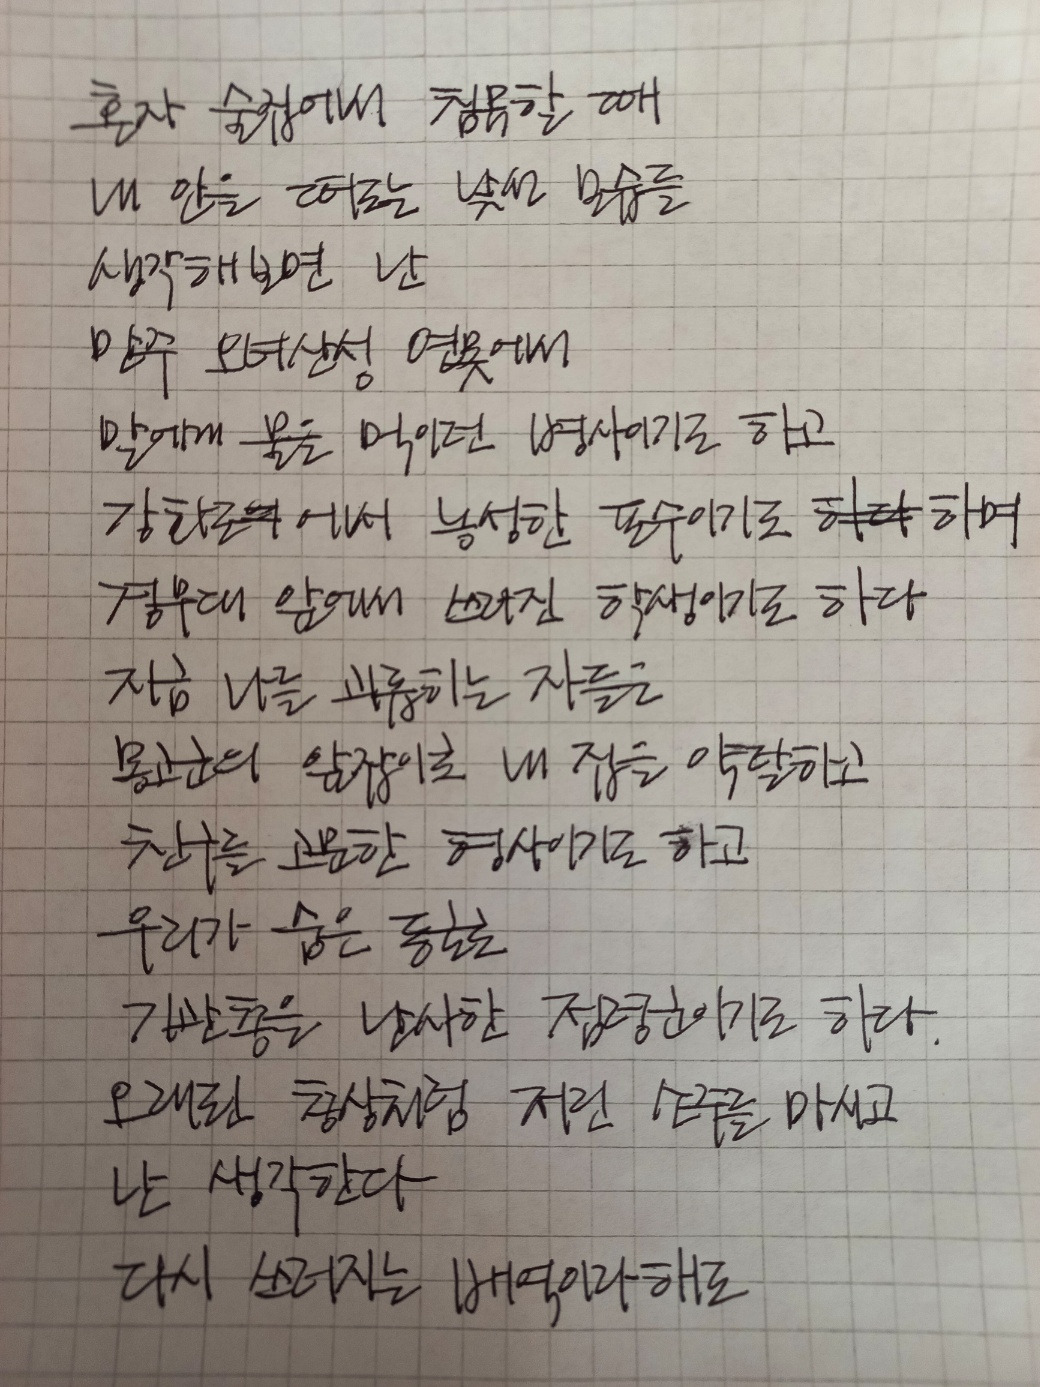 혼자 술집에서 침묵할 때
내 안을 떠도는 낯선 모습들
생각해보면 난
만주 오녀산성 연못에서
말에게 물을 먹이던 병사이기도 하고
강화도에서 농성한 포수이기도 하며
경무대 앞에서 쓰러진 학생이기도 하다
지금 나를 괴롭히는 자들은
몽고군의 앞잡이로 내 집을 약탈하고
친구를 고문한 형사이기도 하고
우리가 숨은 동굴로
기관총을 난사한 점령군이기도 하다.
오래된 환상처럼 저린 소주를 마시고
난 생각한다
다시 쓰러지는 배역이라해도